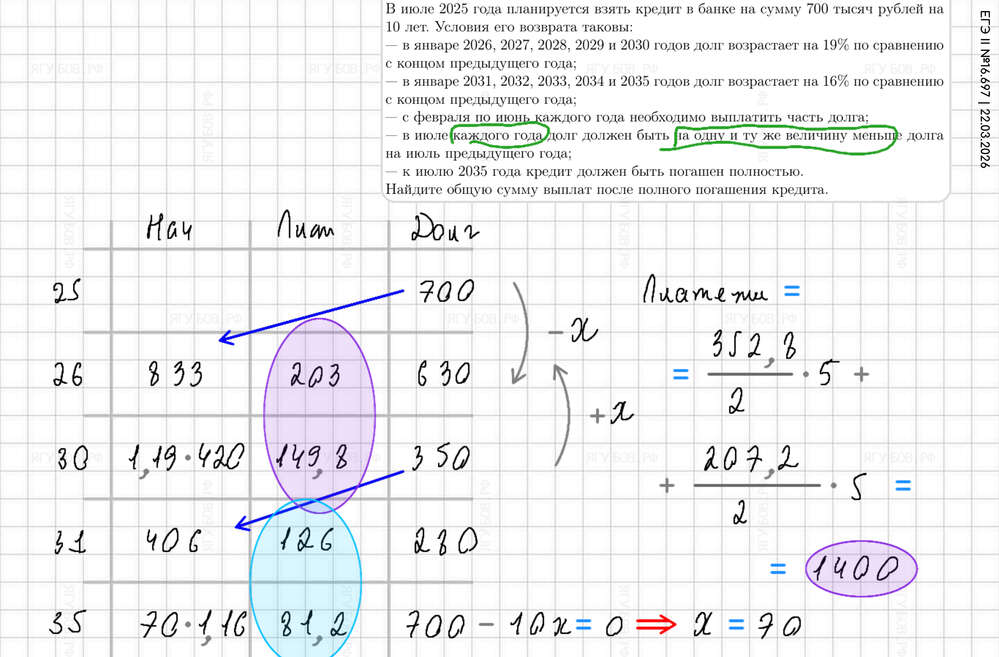 В июле 2025 года планируется взять кредит в банке на сумму 700 тысяч рублей на
10 лет. Условия его возврата таковы:
— в январе 2026, 2027, 2028, 2029 и 2030 годов долг возрастает на 19% по сравнению
с концом предыдущего года;
— в январе 2031, 2032, 2033, 2034 и 2035 годов долг возрастает на 16% по сравнению
с концом предыдущего года;
— с февраля по июнь каждого года необходимо выплатить часть долга;
— в июле каждого года долг должен быть на одну и ту же величину меньше долга
на июль предыдущего года;
— к июлю 2035 года кредит должен быть погашен полностью.
Найдите общую сумму выплат после полного погашения кредита.
ЕГЭ II №16.697 | 22.03.2026
Нач Плат Долг
25 700
26 833 203 630
30 1,19·420 149,8 350
31 406 126 280
35 70·1,16 81,2 700 − 10x = 0 ⇒ x = 70
− x
+ x
Платежи =
= 352,8/2 · 5 +
+ 207,2/2 · 5 =
= 1400
ЯГУБОВ.РФ